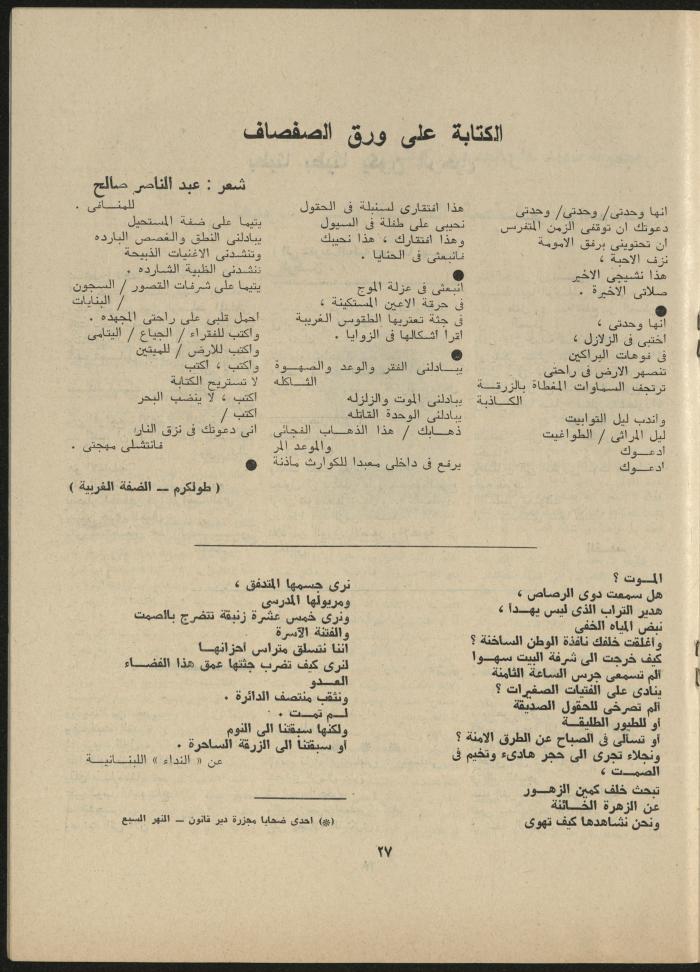 الكتابة على ورق الصفصاف
شعر : عبد الناصر صالح
انها وحدتى/ وحدتى/ وحدتى
دعوتك ان توقفى الزمن المتفرس
ان تحتوينى برفق الامومة
نزف الاحبة ،
هذا نشيجى الاخير
صلاتى الاخيرة .
●
انها وحدتى ،
اختبى فى الزلازل ،
فى فوهات البراكين
تنصهر الارض فى راحتى
ترتجف السماوات المغطاة بالزرقــة
الكــاذبة
واندب ليل التوابيت
ليل المراثى / الطواغيت
ادعــوك
ادعــوك
هذا افتقارى لسنبلة فى الحقول
نحيبى على طفلة فى السيول
وهذا افتقارك ، هذا نحيبك
فانبعثى فى الحنايا .
●
انبعثى فى عزلة الموج
فى حرقة الاعين المستكينة ،
فى جثة تعتريها الطقوس الغريبة
اقرأ اشكالها فى الزوايا .
●
يبــادلنى الفقر والوعد والصهــوة
الثــاكله
يبادلنى الموت والزلزله
يبادلنى الوحدة القاتله
ذهــابك / هذا الذهــاب الفجائى
والموعد المر
يرفع فى داخلى معبدا للكوارث ماذنة
للمنــافى .
يتيما على ضفة المستحيل
يبادلنى النطق والغصص البارده
وتنشدنى الاغنيات الذبيحة
تنشدنى الظبية الشارده .
يتيما على شرفات القصور / السجون
/ البنايات
احمل قلبى على راحتى المجهده .
واكتب للفقراء / الجياع / اليتامى
واكتب للارض / للميتين
واكتب ، اكتب
لا تستريح الكتابة
اكتب ، لا ينضب البحر
اكتب /
انى دعوتك فى نزق النار
فانتشلى مهجتى .
●
( طولكرم ــ الضفة الغربية )
المــوت ؟
هل سمعت دوى الرصاص ،
هدير التراب الذى ليس يهــدا ،
نبض المياه الخفى
واغلقت خلفك نافذة الوطن الساخنة ؟
كيف خرجت الى شرفة البيت سهــوا
الم تسمعى جرس الساعة الثامنة
ينادى على الفتيات الصغيرات ؟
الم تصرخى للحقول الصديقة
او للطيور الطليقــة
او تسألى فى الصباح عن الطرق الامنة ؟
ونجلاء تجرى الى حجر هادىء وتخيم فى
الصمــت ،
تبحث خلف كمين الزهــور
عن الزهرة الخــائنة
ونحن نشاهدها كيف تهوى
نرى جسمها المتدفق ،
ومريولها المدرسى
ونرى خمس عشرة زنبقة تتضرج بالصمت
والفتنة الآسرة
اننا نتسلق متراس احزانهــا
لنرى كيف تضرب جثتها عمق هذا الفضــاء
العــدو
ونثقب منتصف الدائرة .
لــم تمــت .
ولكنها سبقتنا الى النوم
أو سبقتنا الى الزرقة الساحرة .
عن « النداء » اللبنــانيــة
(*) احدى ضحايا مجزرة دير قانون ــ النهر السبع
٢٧